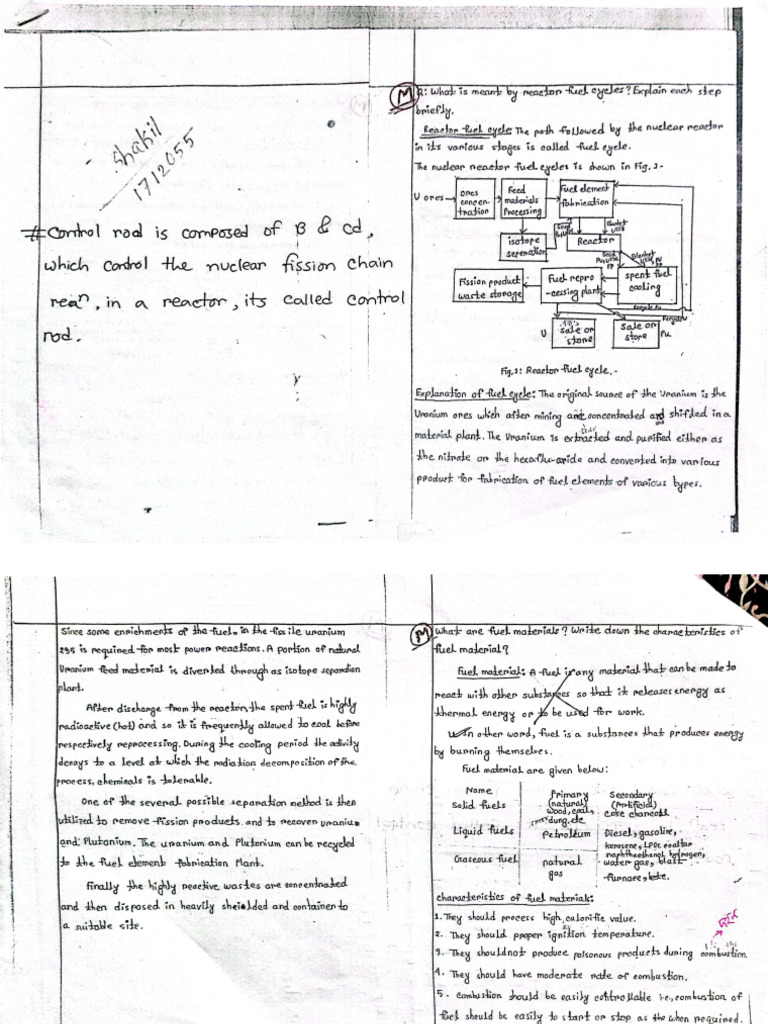 Shakil
1712055
# Control rod is composed of B & Cd,
which control the nuclear fission chain
rean, in a reactor, its called control
rod.
M
Q: What is meant by reactor fuel cycles? Explain each step
briefly.
Reactor fuel cycle: The path followed by the nuclear reactor
in its various stages is called fuel cycle.
The nuclear reactor fuel cycles is shown in Fig. 1-
U ores
Ores concen-tration
Feed materials Processing
Fuel element fabrication
isotope seperation
Reactor
Fission product waste storage
Fuel repro-cessing plant
spent fuel cooling
Recycle Pu
Recycle U
U
sale or store
sale or store
Pu
Fig. 1: Reactor fuel cycle.-
Explanation of fuel cycle: The original source of the Uranium is the
Uranium ores which after mining and concentrated and shifted in a
material plant. The Uranium is extracted and purified either as
the nitrate or the hexaflu-oride and converted into various
product for fabrication of fuel elements of various types.
Since some enrichments of the fuel, in the fissile uranium
235 is required for most power reactions. A portion of natural
Uranium feed material is diverted through as isotope separation
plant.
After discharge from the reactor, the spent fuel is highly
radioactive (hot) and so it is frequently allowed to cool before
respectively reprocessing. During the cooling period the activity
decays to a level at which the radiation decomposition of the
process, chemicals is tolerable.
One of the several possible separation method is then
utilized to remove fission products and to recover uranium
and Plutonium. The uranium and Plutonium can be recycled
to the fuel element fabrication Plant.
Finally the highly reactive wastes are concentrated
and then disposed in heavily sheielded and container to
a suitable site.
M
What are fuel materials? Write down the characteristics of
fuel material?
Fuel material: A fuel is any material that can be made to
react with other substances so that it releases energy as
thermal energy or to be used for work.
In other word, fuel is a substances that produces energy
by burning themselves.
Fuel material are given below:
Name Primary (natural) Secondary (Artificial)
Solid fuels wood, coal, dung, etc coke charcoal
Liquid fuels Petroleum Diesel, gasoline, kerosene, LPG, coaltar
Gaseous fuel natural gas hydrogen, water gas, blast furnace,
characteristics of fuel materials:
1. They should process high calorific value.
2. They should proper ignition temperature.
3. They should not produce poisonous products during combustion.
4. They should have moderate rate of combustion.
5. combustion should be easily controllable i.e, combustion of
fuel should be easily to start or stop as the when required.